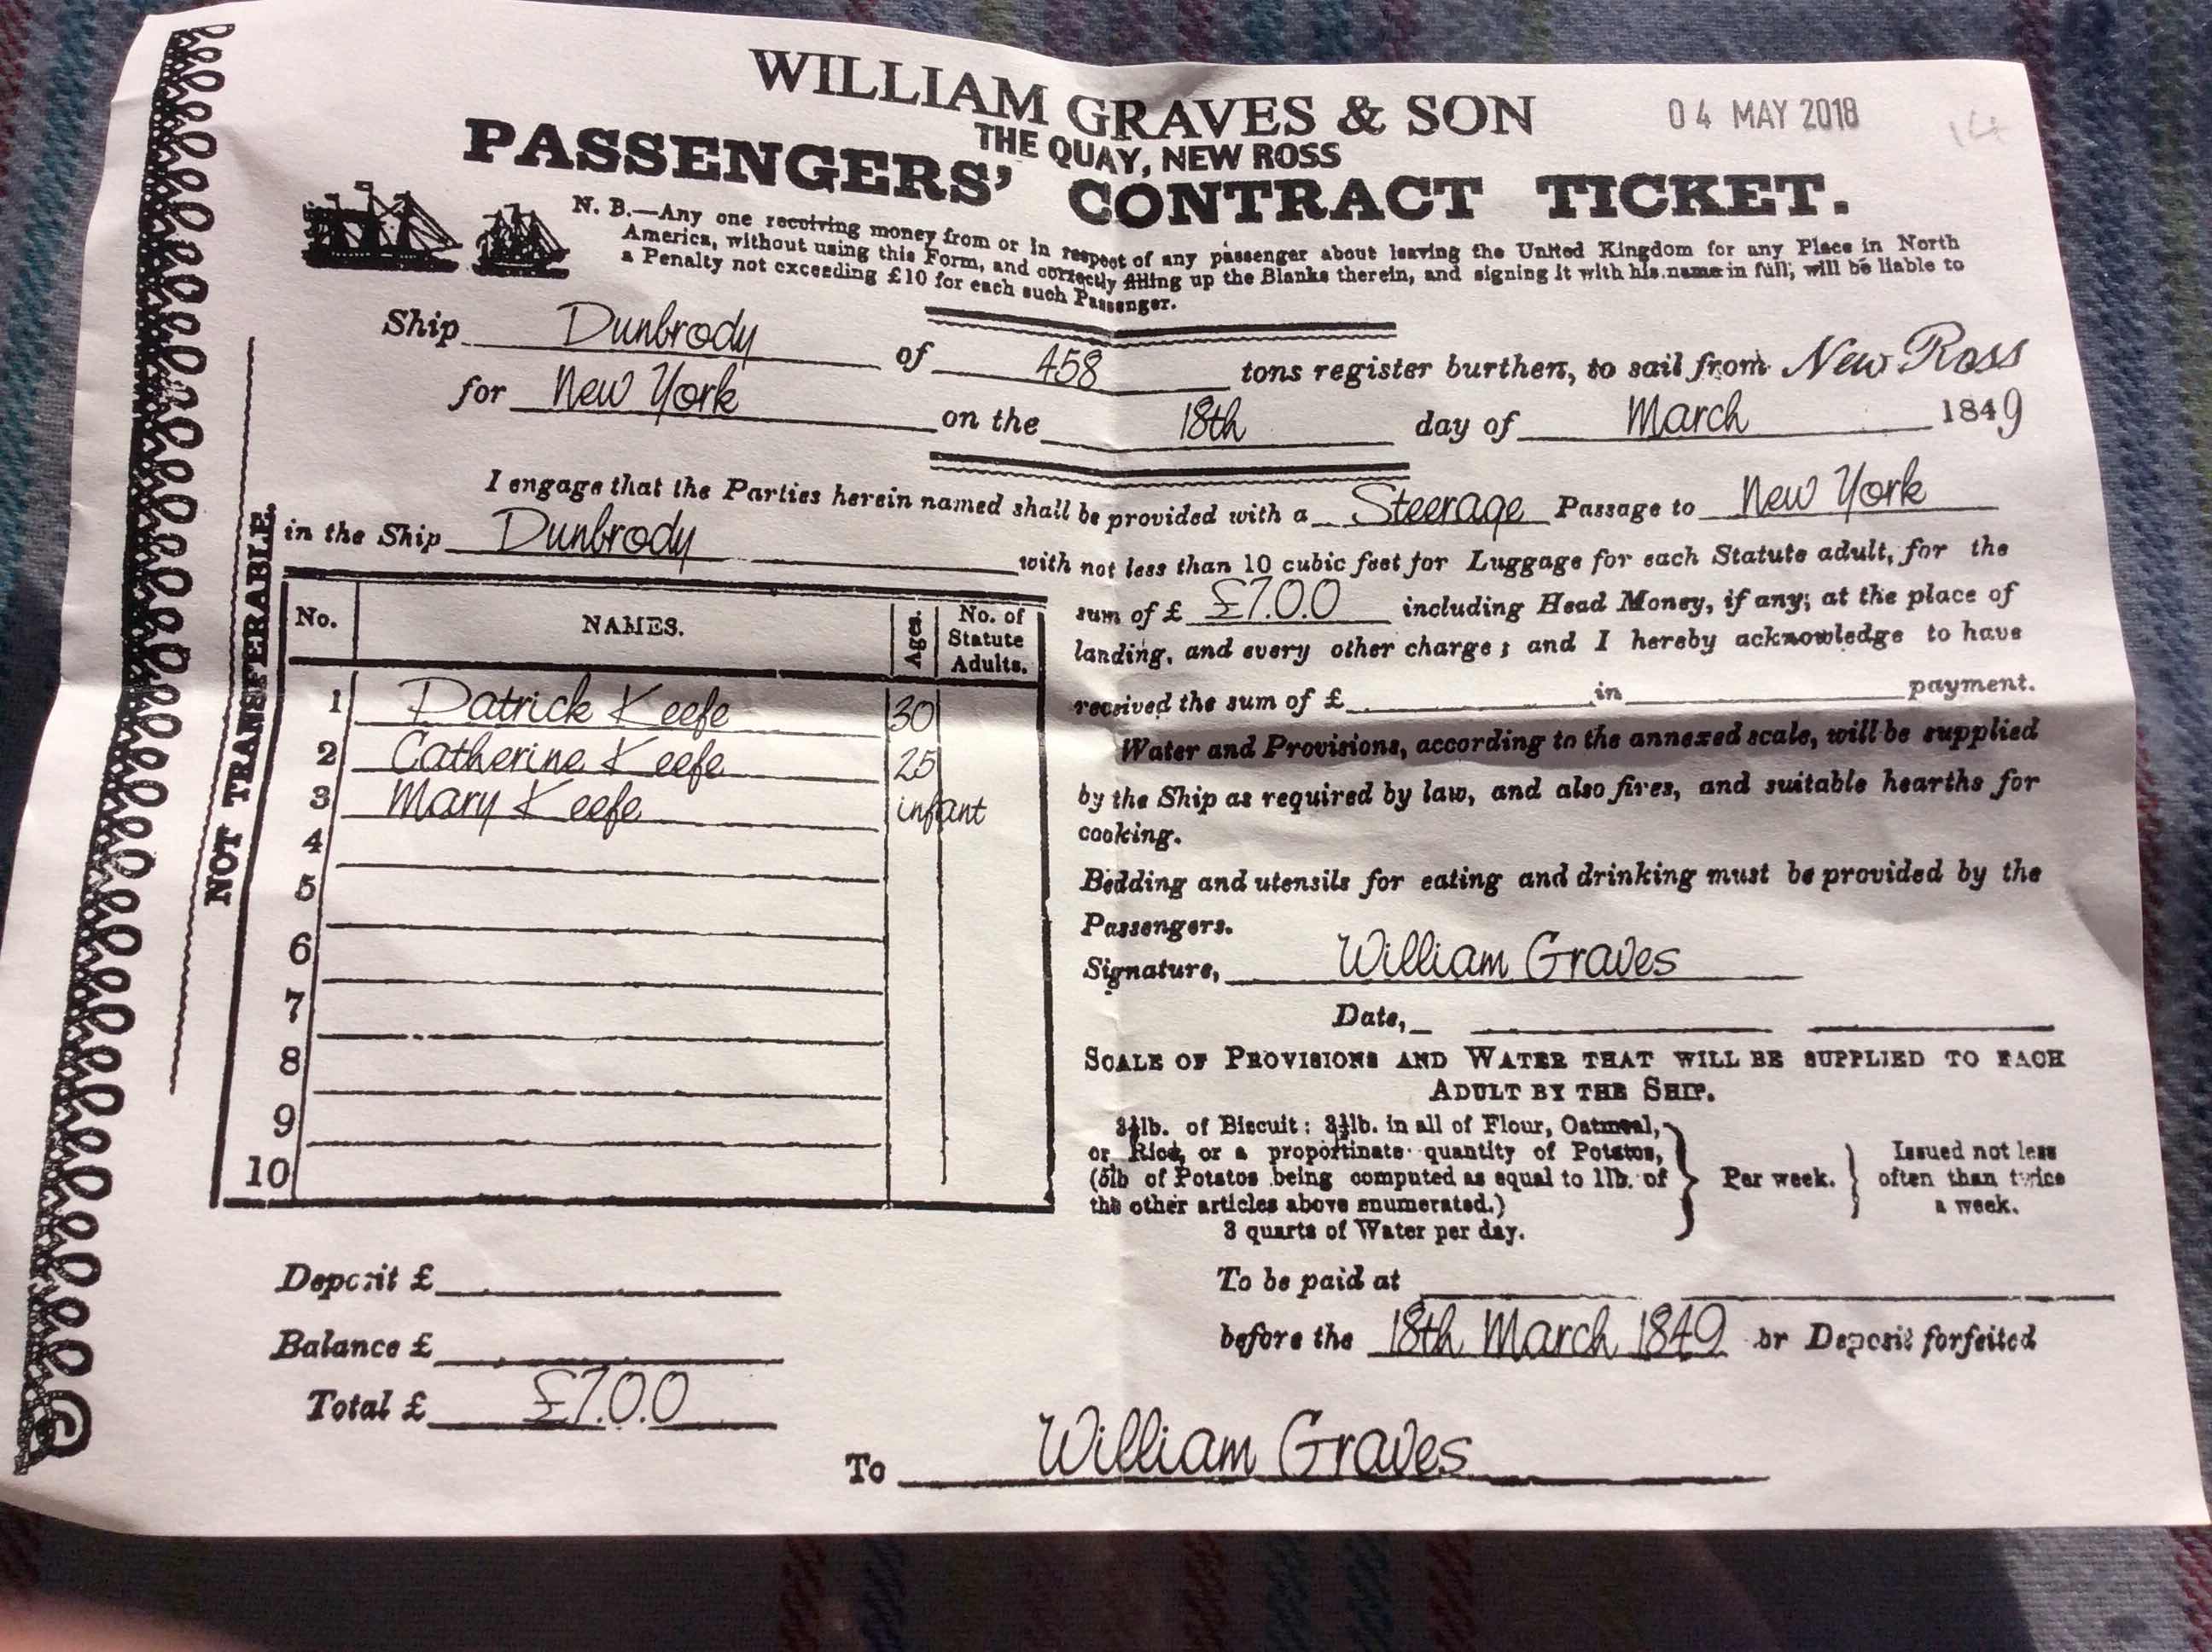 WILLIAM GRAVES & SON
04 MAY 2018
14
THE QUAY, NEW ROSS
PASSENGERS' CONTRACT TICKET.
N. B.—Any one receiving money from or in respect of any passenger about leaving the United Kingdom for any Place in North
America, without using this Form, and correctly filling up the Blanks therein, and signing it with his name in full, will be liable to
a Penalty not exceeding £10 for each such Passenger.
Ship Dunbrody of 458 tons register burthen, to sail from New Ross
for New York on the 18th day of March 1849
I engage that the Parties herein named shall be provided with a Steerage Passage to New York
in the Ship Dunbrody with not less than 10 cubic feet for Luggage for each Statute adult, for the
sum of £ £7.0.0 including Head Money, if any, at the place of
landing, and every other charge; and I hereby acknowledge to have
received the sum of £ in payment.
Water and Provisions, according to the annexed scale, will be supplied
by the Ship as required by law, and also fires, and suitable hearths for
cooking.
Bedding and utensils for eating and drinking must be provided by the
Passengers.
Signature, William Graves
Date,
NOT TRANSFERABLE.
No. NAMES. Ages. No. of Statute Adults.
1 Patrick Keefe 30
2 Catherine Keefe 25
3 Mary Keefe infant
4
5
6
7
8
9
10
SCALE OF PROVISIONS AND WATER THAT WILL BE SUPPLIED TO EACH
ADULT BY THE SHIP.
3½lb. of Biscuit: 3½lb. in all of Flour, Oatmeal,
or Rice, or a proportinate quantity of Potatos,
(5lb of Potatos being computed as equal to 1lb. of
the other articles above enumerated.)
3 quarts of Water per day.
Per week.
Issued not less
often than twice
a week.
Deposit £
Balance £
Total £ £7.0.0
To be paid at
before the 18th March 1849 or Deposit forfeited
To William Graves